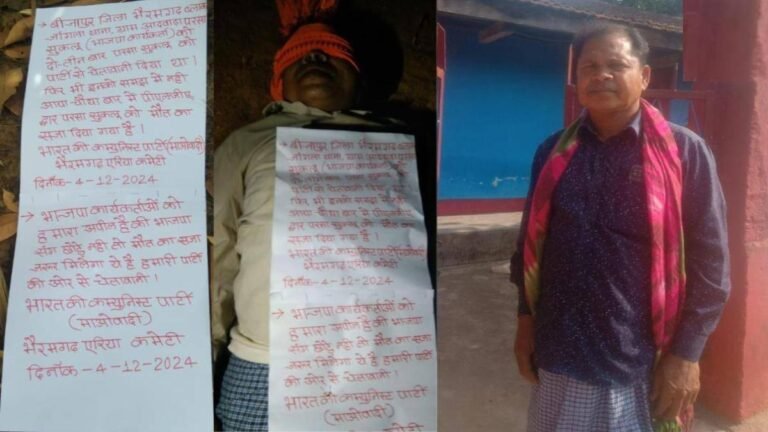 → बीजापुर जिला भैरमगढ ब्लाक
जांगला थाना, ग्राम आदवाडा परसा
सुकलू (भाजपा कार्यकर्ता) को
दो-तीन बार परसा सुकलू को
पार्टी से चेतावनी दिया था।
फिर भी इनको समझ में नही
आया-चौथा बार से पीएलजीए,
द्वार परसा सुकलू को मौत का
सजा दिया गया है।
भारत की कम्युनिस्ट पार्टी (माओवादी)
भैरमगढ एरिया कमेटी
दिनाँक-4-12-2024
→ भाजपा कार्यकर्ताओं को
हमारा अपील है की भाजपा
संग छोंडे़ नही तो मौत का सजा
जरूर मिलेगा ये है हमारी पार्टी
की ओर से चेतावानी।
भारत की कम्युनिस्ट पार्टी
(माओवादी)
भैरमगढ एरिया कमेटी
दिनाँक-4-12-2024
→ बीजापुर जिला भैरमगढ ब्लाक
जांगला थाना, ग्राम आदवाडा परसा
सुकलू (भाजपा कार्यकर्ता) को
दो-तीन बार परसा सुकलू को
पार्टी से चेतावनी दिया था।
फिर भी इनको समझ में नही
आया-चौथा बार से पीएलजीए,
द्वार परसा सुकलू को मौत का
सजा दिया गया है।
भारत की कम्युनिस्ट पार्टी (माओवादी)
भैरमगढ एरिया कमेटी
दिनाँक-4-12-2024
→ भाजपा कार्यकर्ताओं को
हमारा अपील है की भाजपा
संग छोंडे़ नही तो मौत का सजा
जरूर मिलेगा ये है हमारी पार्टी
की ओर से चेतावानी।
भारत की कम्युनिस्ट पार्टी
(माओवादी)